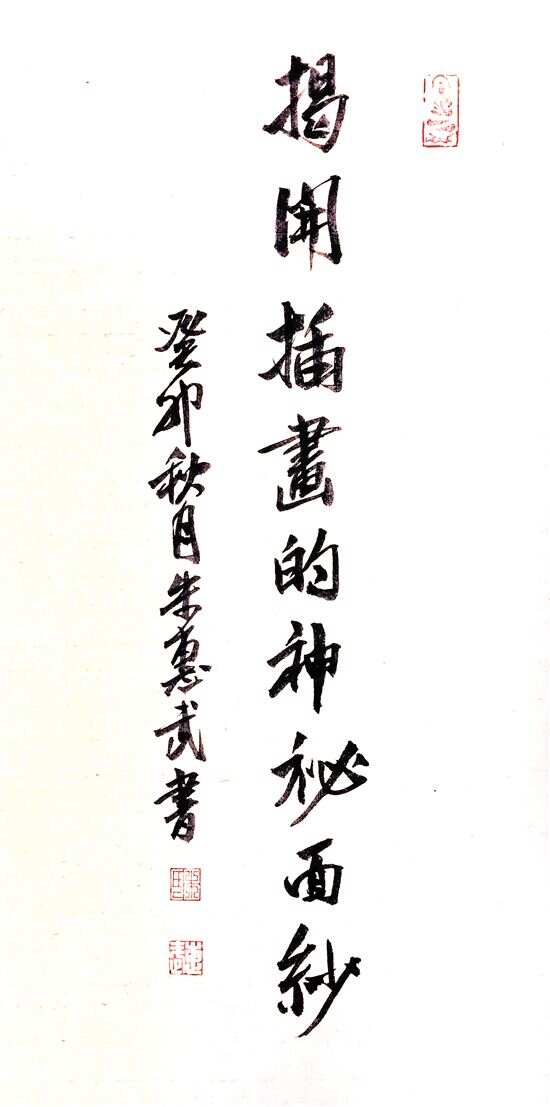 揭開插畫的神秘面紗
癸卯秋月朱惠武書